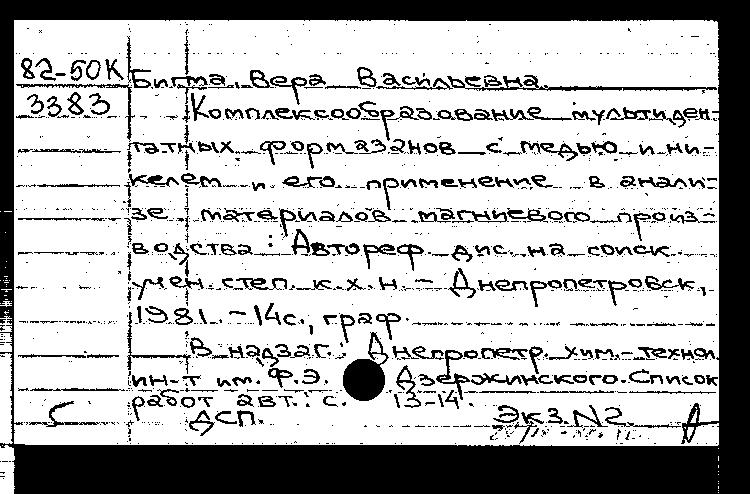 82-50К Бигма Вера Васильевна.
3383 Комплексообразование мультиден-
татных формазанов с медью и ни-
келем и его применение в анали-
зе материалов магниевого произ-
водства: Автореф. дис. на соиск.
учен. степ. к.х.н. – Днепропетровск,
1981. – 14с., граф.
В надзаг.: Днепропетр. хим.-технол.
ин-т им. Ф.Э. Дзержинского. Список
работ авт.: с. 13-14.
5 ДСП. Экз. N2.